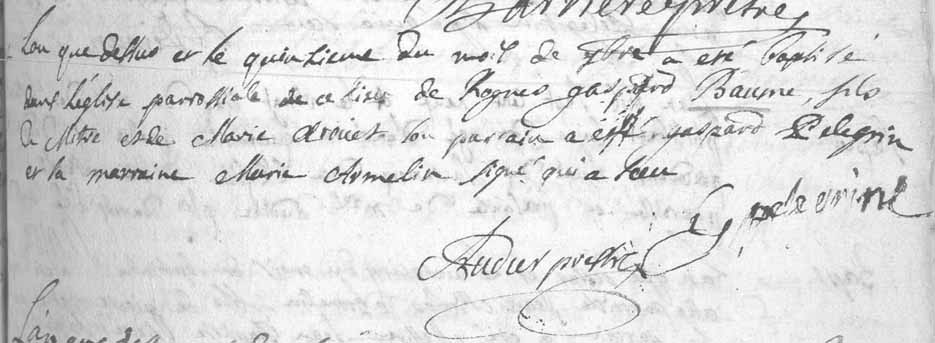 Barriere pretre
Lan que dessus et le quinzieme du mois de 7bre a eté baptisé
dans leglise parrossiale de ce lieu de Rognes gaspard Baume, fils
de Mitre et de Marie drouet son parrain a esté gaspard Pelegrin
et la marraine Marie Armelin signé qui a sceu
G pelegrin
Audier prestre
Lan que dessus